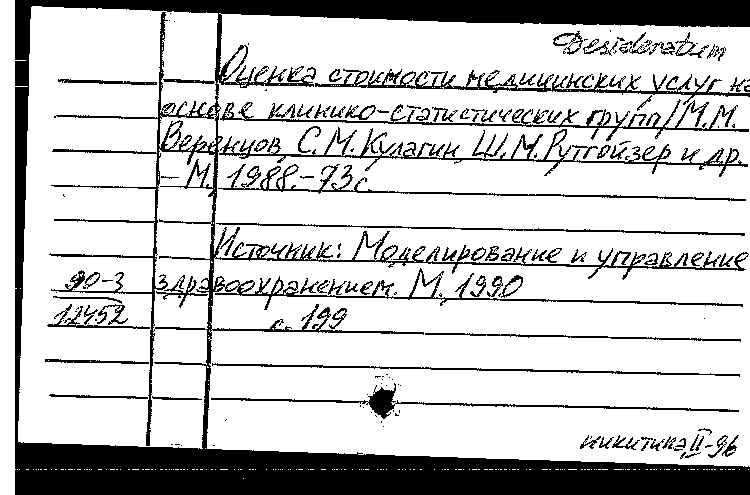 Desideratum
Оценка стоимости медицинских услуг на
основе клинико-статистических групп/М.М.
Веренцов, С.М. Кулагин, Ш.М. Рутгойзер и др.
– М., 1988.–73с
Источник: Моделирование и управление
90-3 здравоохранением. М., 1990
12452 с. 199
никитина, II-96